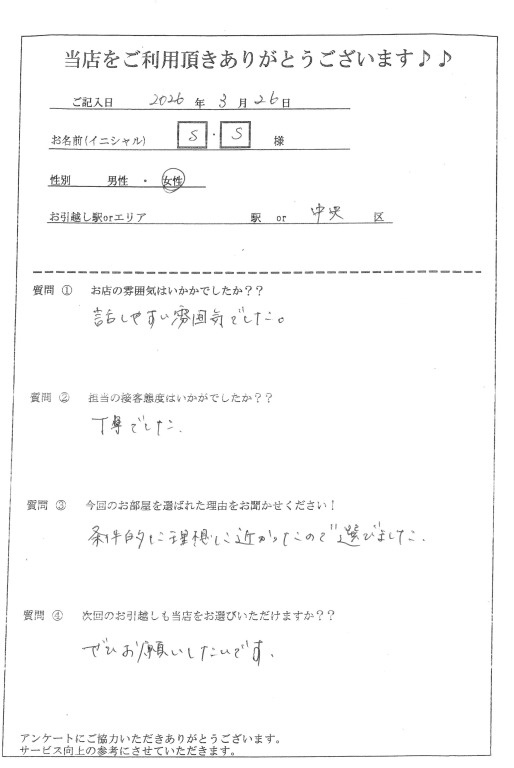 当店をご利用頂きありがとうございます♪♪
ご記入日 2026 年 3 月 26 日
お名前(イニシャル) S . S 様
性別 男性 ・ 女性
お引越し駅orエリア 駅 or 中央 区
質問 ① お店の雰囲気はいかかでしたか??
話しやすい雰囲気でした。
質問 ② 担当の接客態度はいかがでしたか??
丁寧でした.
質問 ③ 今回のお部屋を選ばれた理由をお聞かせください!
条件的に理想に近かったので選びました.
質問 ④ 次回のお引越しも当店をお選びいただけますか??
ぜひお願いしたいです.
アンケートにご協力いただきありがとうございます。
サービス向上の参考にさせていただきます。